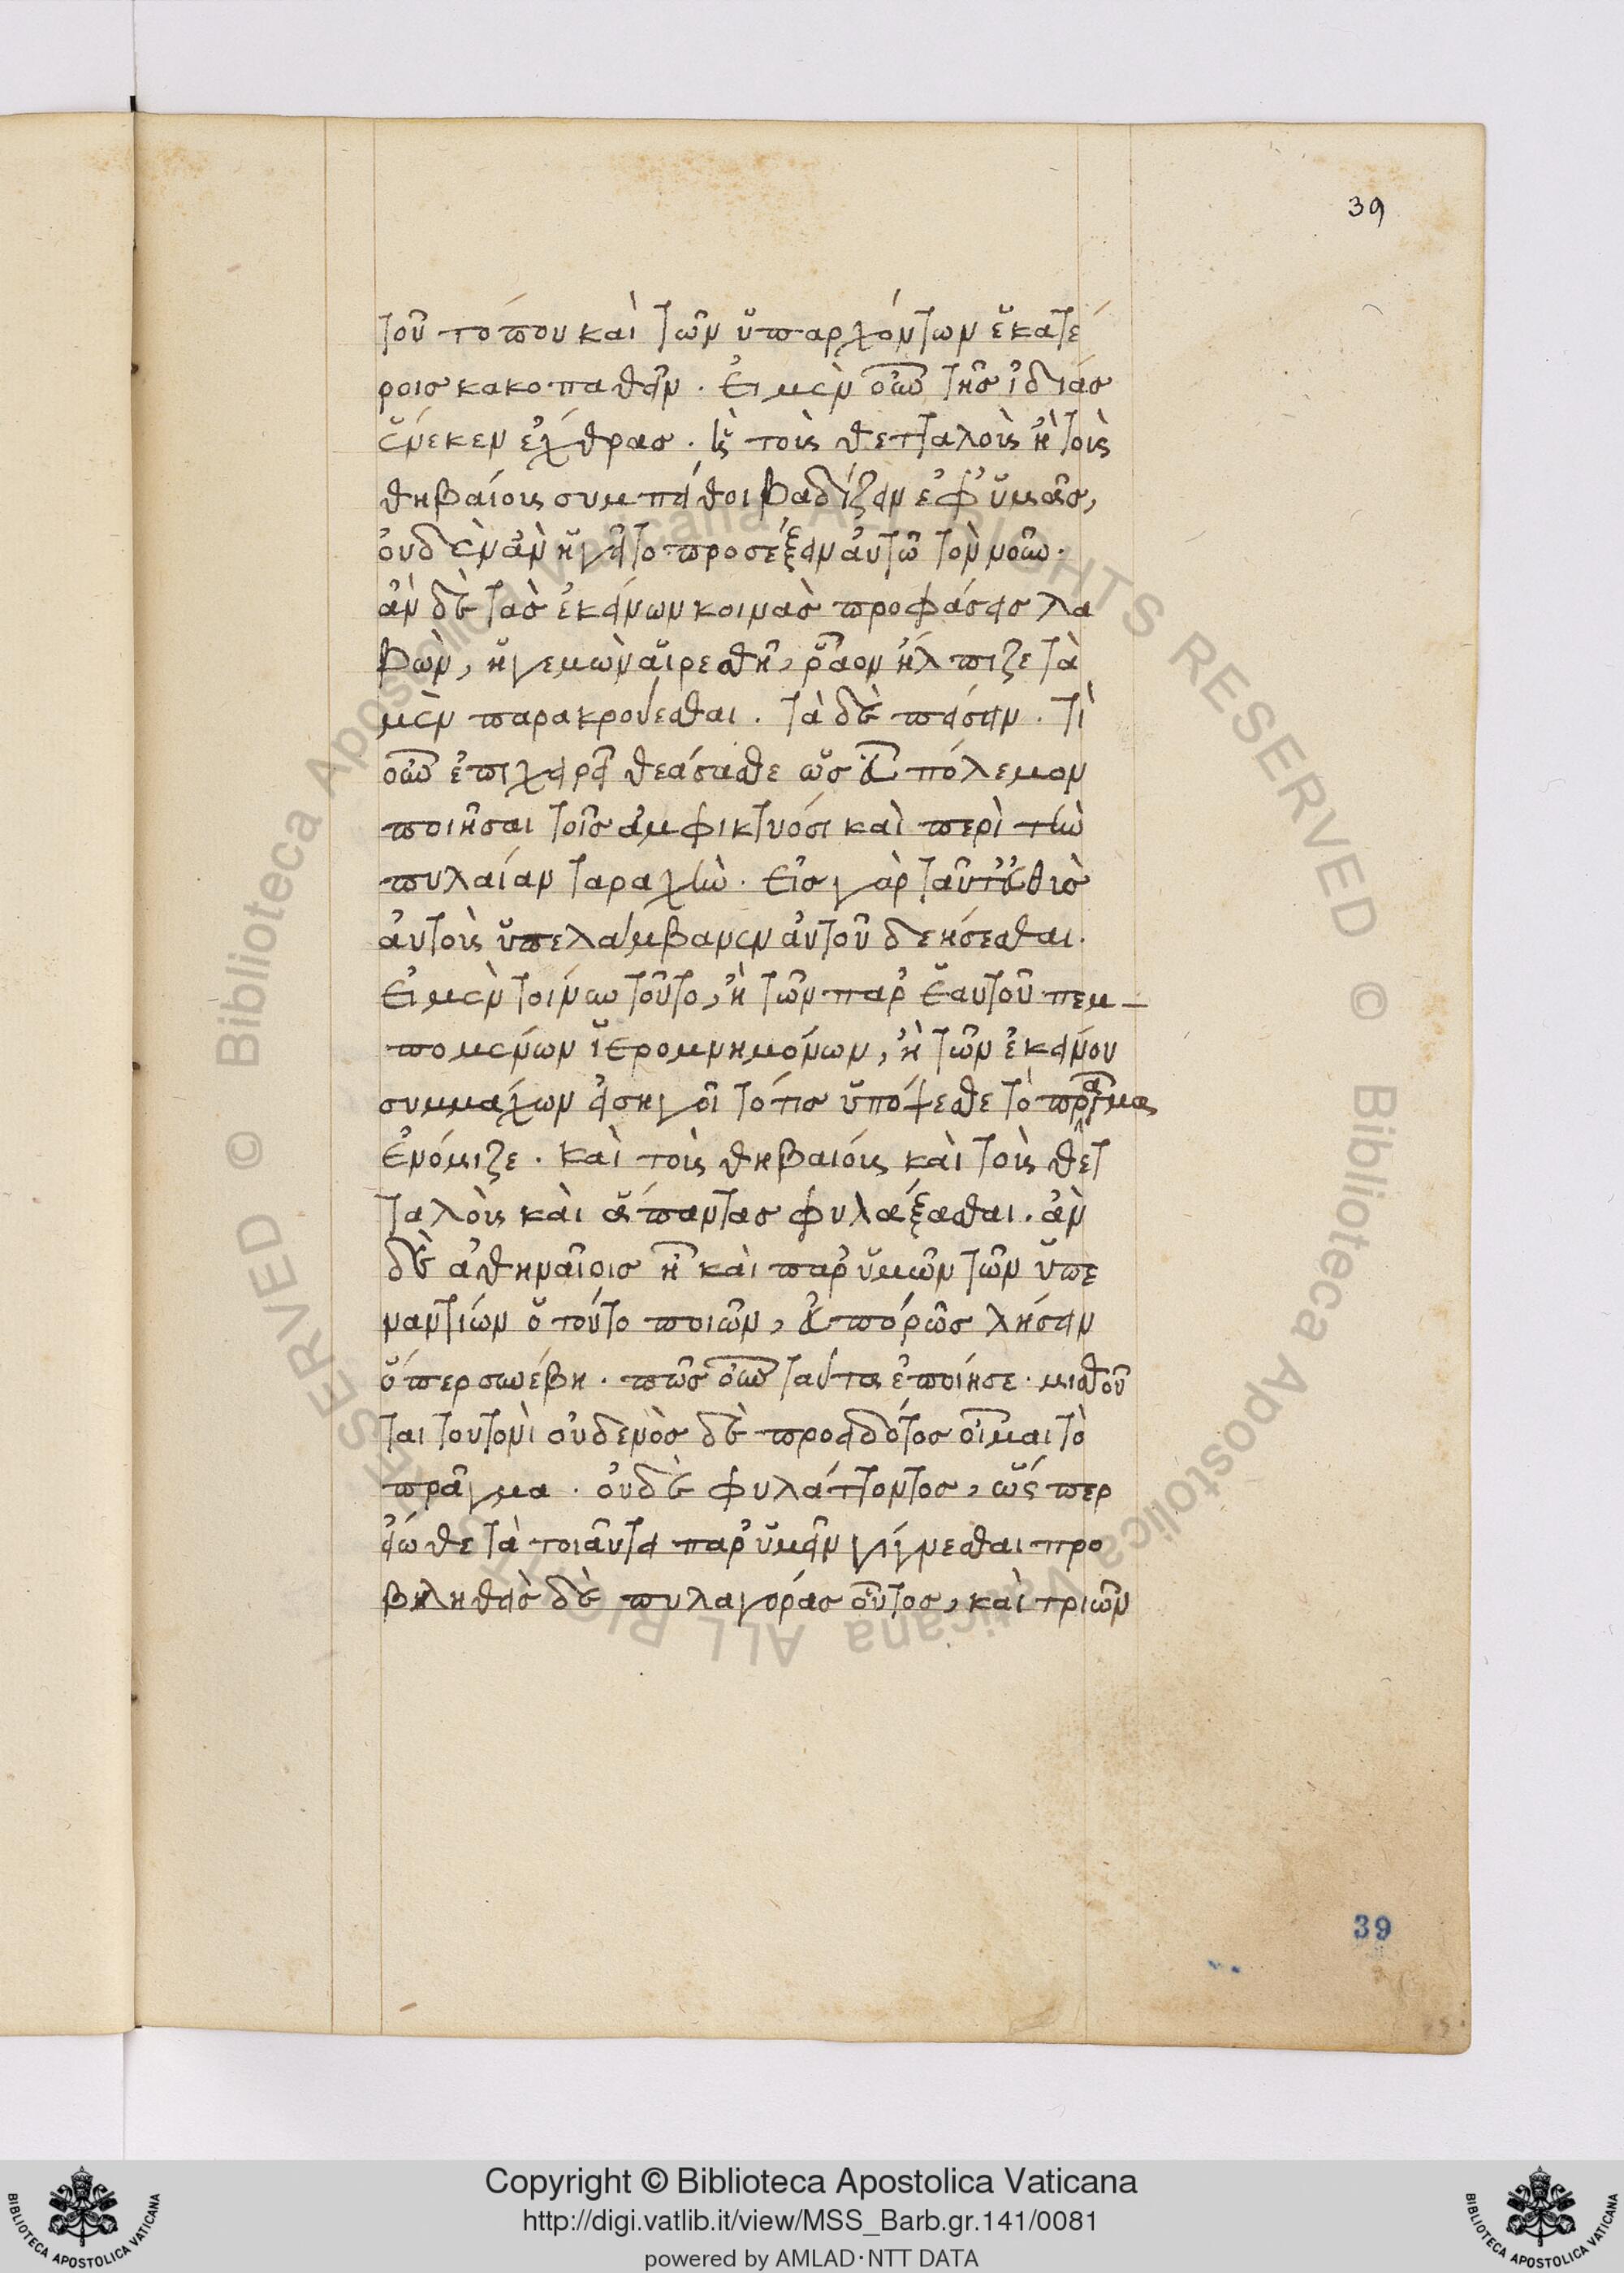 39
τοῦ τόπου καὶ τῶν ὑπαρχόντων ἑκατέ
ροις κακοπαθεῖν. Εἰ μὲν οὖν τῆς ἰδιάς
ἕνεκεν ἐχθρας. ἢ τοὺς θετταλοὺς ἢ τοὺς
θηβαίους συμπείθοι βαδίζειν ἐφ' ὑμᾶς,
ὀυδὲν ἂν ἡγεῖτο προσέξειν ἀυτῶ τὸν νοῦν.
ἀν δὲ τὰς ἐκείνων κοινὰς προφάσεις λα
βὼν, ἡγεμὼν αἱρεθῆ, ῥᾶον ἤλπιζε τὰ
μὲν παρακρούεσθαι. τὰ δὲ πείσειν. τὶ
οὖν ἐπιχειρεῖ θεάσασθε ὡς εὖ πόλεμον
ποιῆσαι τοῖς ἀμφικτυόσι καὶ περὶ τὴν
πυλαίαν ταραχὴν. Εἰς γὰρ ταῦτ' εὐθὺς
ἀυτοὺς ὑπελάμβανεν ἀυτοῦ δεήσεσθαι.
Εἰ μὲν τοίνυν τοῦτο, ἢ τῶν παρ' ἑαυτοῦ πεμ-
πομένων ἱερομνημόνων, ἢ τῶν ἐκείνου
συμμάχων εἰσηγοῖτό τις ὑπόψεσθε τὸ πρᾶγμα
Ἐνόμιζε. καὶ τοὺς θηβαιόυς καὶ τοὺς θετ
ταλὸυς κὰι ἅπαντας φυλάξασθαι. ἀν
δὲ ἀθηναῖοις ἦ κὰι παρ' ὑμῶν τῶν ὑπε
ναντιών ὁ τοῦτο ποιῶν, εὐπόρῶς λήσειν
ὅπερ συνέβη. πῶς οὖν ταύτα ἐποίησε. μισθοῦ
ται τουτονὶ οὐδενὸς δὲ προειδότος οἶμαι τὸ
πρᾶγμα. ὀυδὲ φυλάττοντος, ὥς περ
εἰώθε τὰ τοιᾶυτα παρ' ὑμεῖν γίγνεσθαι προ
βληθεὶς δὲ πυλαγόρας οὗτος, κὰι τριῶν
39
Copyright © Biblioteca Apostolica Vaticana
http://digi.vatlib.it/view/MSS_Barb.gr.141/0081
powered by AMLAD·NTT DATA